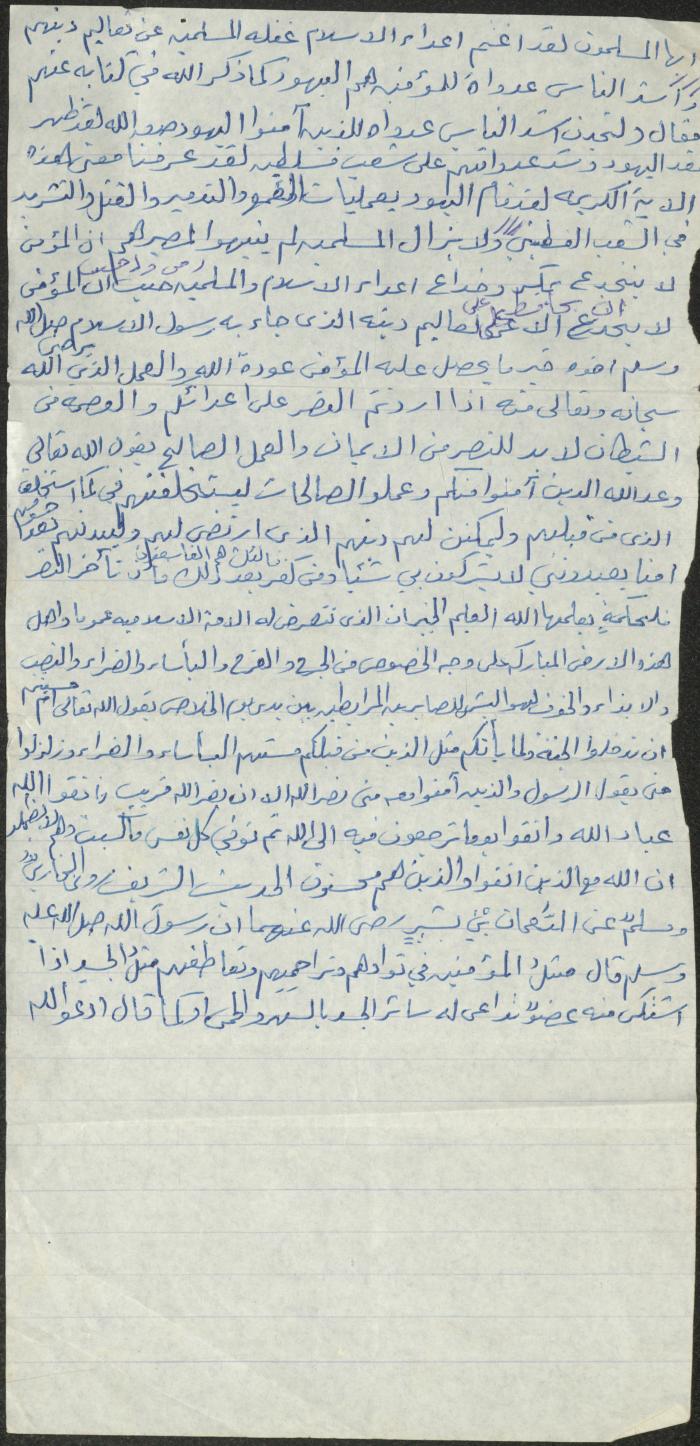 ايها المسلمون لقد اغتنم اعداء الاسلام غفله المسلمين عن تعاليم دينهم
اشد الناس عدواة للمؤمنين هم اليهود كما ذكر الله في كتابه عنهم
فقال ولتجدن اشد الناس عدواه للذين آمنوا اليهود صدق الله لقد ظهر
حقد اليهود وشد عدواتهم على شعب فلسطين لقد عرفنا معنى هذه
الاية الكريمه لقد قام اليهود بعمليات الهدم والتدمير والقتل والتشريد
في الشعب الفلسطيني ولا يزال المسلمين لم ينتبهوا لمصيرهم ان المؤمن
لا ينخدع بمكر وخداع اعداء الاسلام والمسلمين حيث ان المؤمن
لا ينخدع الا ان يحافظ على تعاليم دينه الذى جاء به رسول الاسلام صلى الله
وسلم اخوه خير ما يحصل عليه المؤمن عودة الله والعمل الذى يرضى الله
سبحانه وتعالى منه اذا اردتم النصر على اعدائكم والعصمه من
الشيطان لابد للنصر من الايمان والعمل الصالح يقول الله تعالى
وعد الله الذين آمنوا منكم وعملو الصالحات ليستخلفنهم في كما استخلف
الذى من قبلهم وليمكنن لهم دينهم الذى ارتضى لهم وليبدلنهم من بعد خوفهم
امنا يعبدونني لا يشركون بي شيئا ومن كفر بعد ذلك فاولئك هم الفاسقون تأخر النصر
فلحكمة يعلمها الله العليم الخبير ان الذى تتعرض له الامة الاسلاميه عموما واهل
هذه الارض المباركه على وجه الخصوص من الجرح والقرح والبأساء والضراء والنصب
والايذاء والخوف لهو البشر للصابرين المرابطين بين يدى من الخلاص يقول الله تعالى ام حسبتم
ان تدخلوا الجنة ولما يأتكم مثل الذين من قبلكم مستهم البأساء والضراء وزلزلوا
حتى يقول الرسول والذين آمنوا معه متى نصر الله الا ان نصر الله قريب فاتقوا الله
عباد الله واتقوا يوما ترجعون فيه الى الله ثم توفي كل نفس ما كسبت وهم لا يظلمون
ان الله مع الذين اتقوا والذين هم محسنون الحديث الشريف روى البخاريُ
ومسلمٌ عن النُعمان بْنِ بَشيرٍ رضى الله عنهما ان رسول الله صلى الله عليه
وسلم قال مثلُ المؤمنين في توادهم وتراحمهم وتعاطفهم مثلُ الجسد اذا
اشتكى منه عضوٌ تداعى له سائر الجسد بالسهر والحمى او كما قال ادعو الله